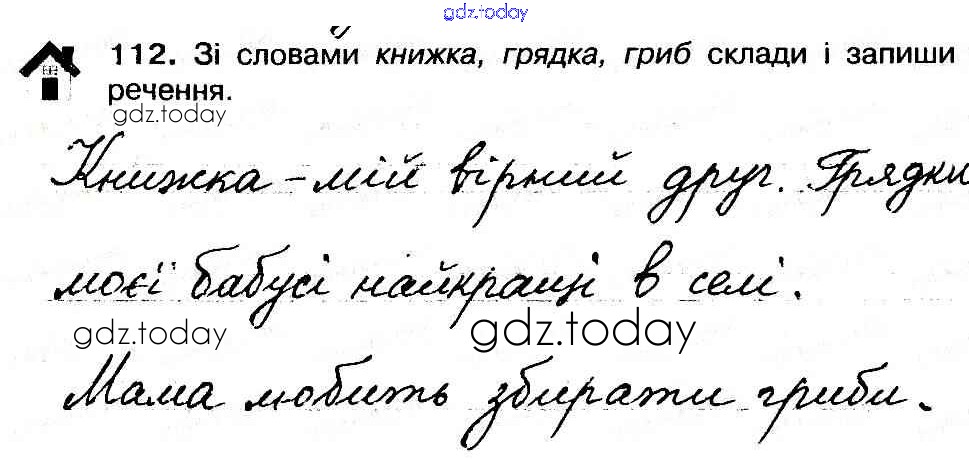 gdz.today
112. Зі словами книжка, грядка, гриб склади і запиши
речення.
gdz.today
Книжка – мій вірний друг. Грядки
моєї бабусі найкращі в селі.
gdz.today gdz.today
Мама любить збирати гриби.